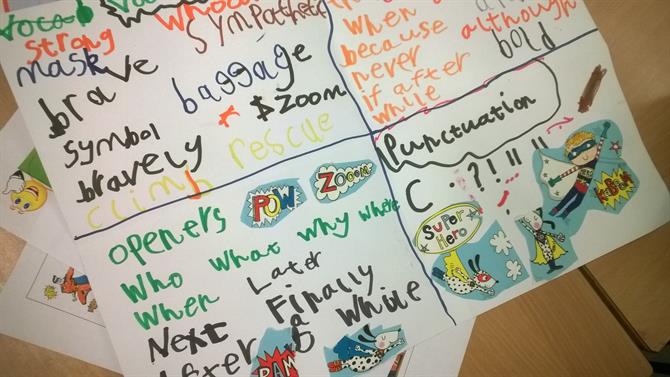 strong
mask
brave
symbol
bravely
climb rescue
sympathetic
baggage
$ ZOOM
when
because
never
if after
while
although
bold
Punctuation
C . ? ! ! " "
openers
who what why where
when Later
Next Finally
After a while
POW
ZOOOM
SUPER
HERO